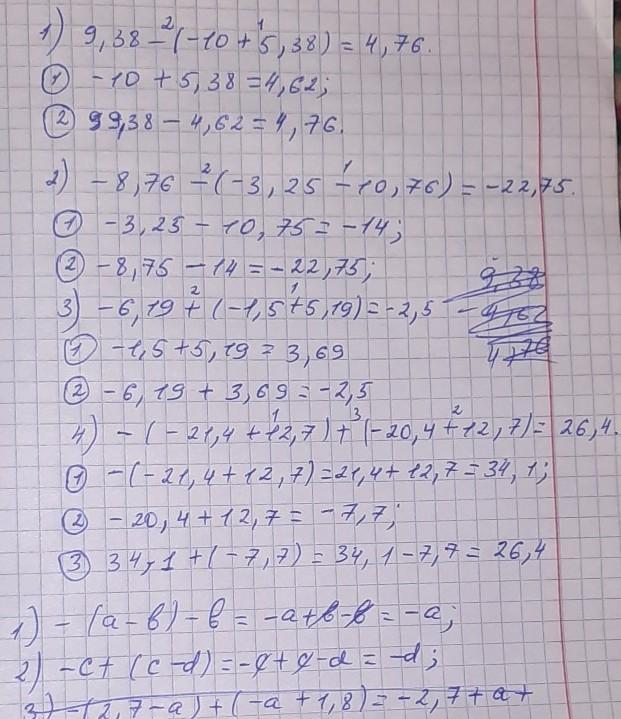 1) 9,38 - (-10 + 5,38) = 4,76.
① -10 + 5,38 = 4,62;
② 99,38 - 4,62 = 4,76.
2) -8,76 - (-3,25 - 10,76) = -22,75.
① -3,25 - 10,75 = -14;
② -8,75 - 14 = -22,75;
9,38
3) -6,19 + (-1,5 + 5,19) = -2,5
- 4,62
① -1,5 + 5,19 = 3,69
4,76
② -6,19 + 3,69 = -2,5
4) -(-21,4 + 12,7) + (-20,4 + 12,7) = 26,4.
① -(-21,4 + 12,7) = 21,4 + 12,7 = 34,1;
② -20,4 + 12,7 = -7,7;
③ 34,1 + (-7,7) = 34,1 - 7,7 = 26,4
1) -(a - b) - b = -a + b - b = -a;
2) -c + (c - d) = -c + c - d = -d;
3) -(2,7 - a) + (-a + 1,8) = -2,7 + a +